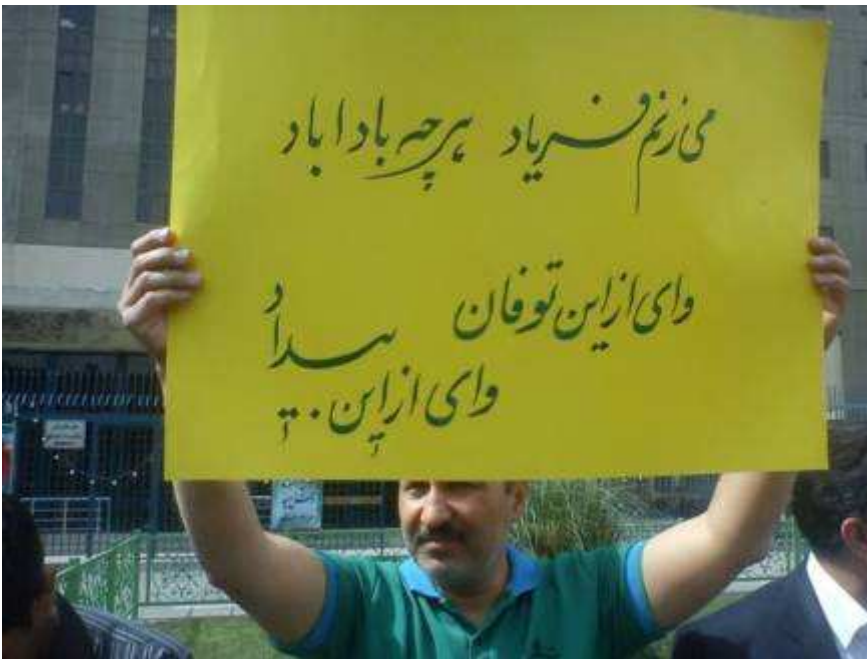 می زنم فریاد هرچه بادا باد
وای از این توفان
وای از این بیداد